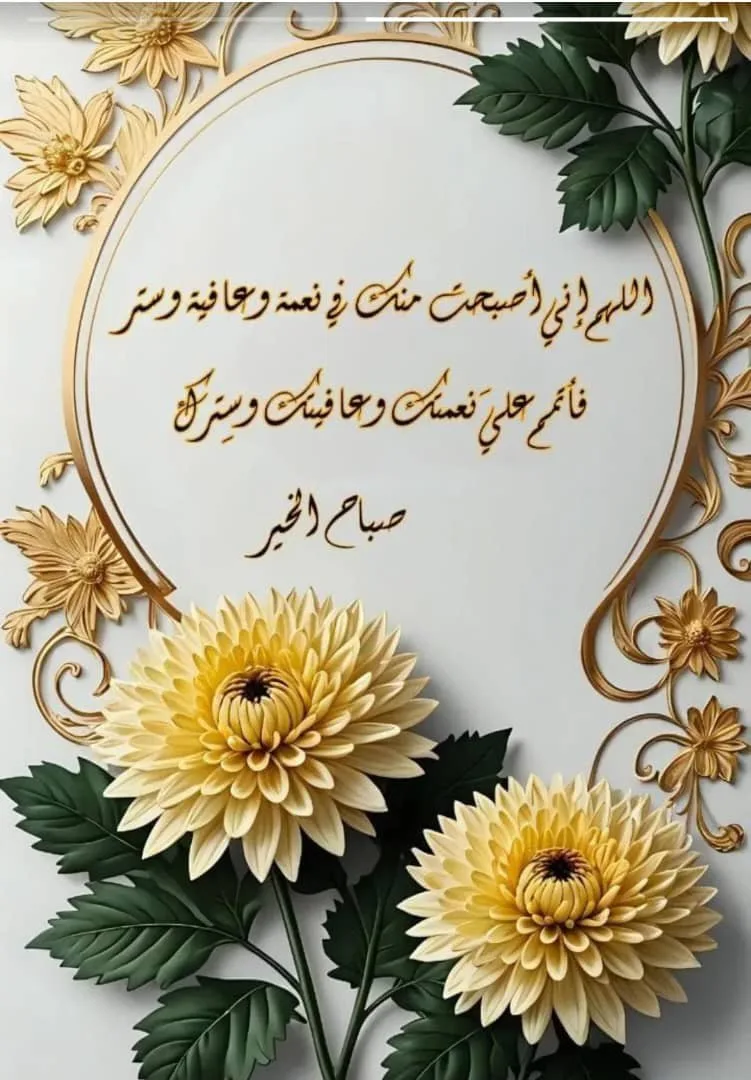 اللهم إني أصبحت منك في نعمة وعافية وستر
فأتمم عليَ نعمتك وعافيتك وسِترك
صباح الخير